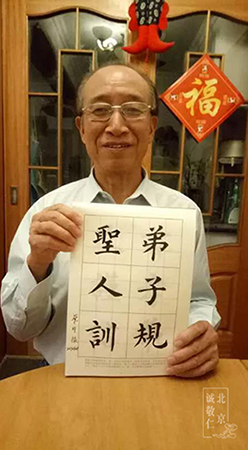 福
弟子規
聖人訓
北京
诚敬仁